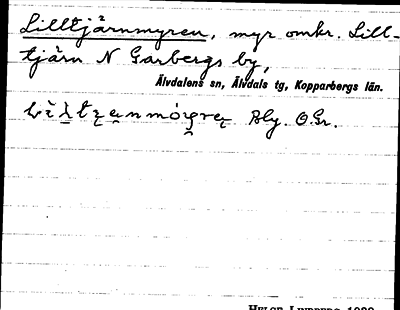 Lilltjärnmyren, myr omkr. Lill-
tjärn N Garbergs by,
Älvdalens sn, Älvdals tg, Kopparbergs län.
Bly. O.Gr.